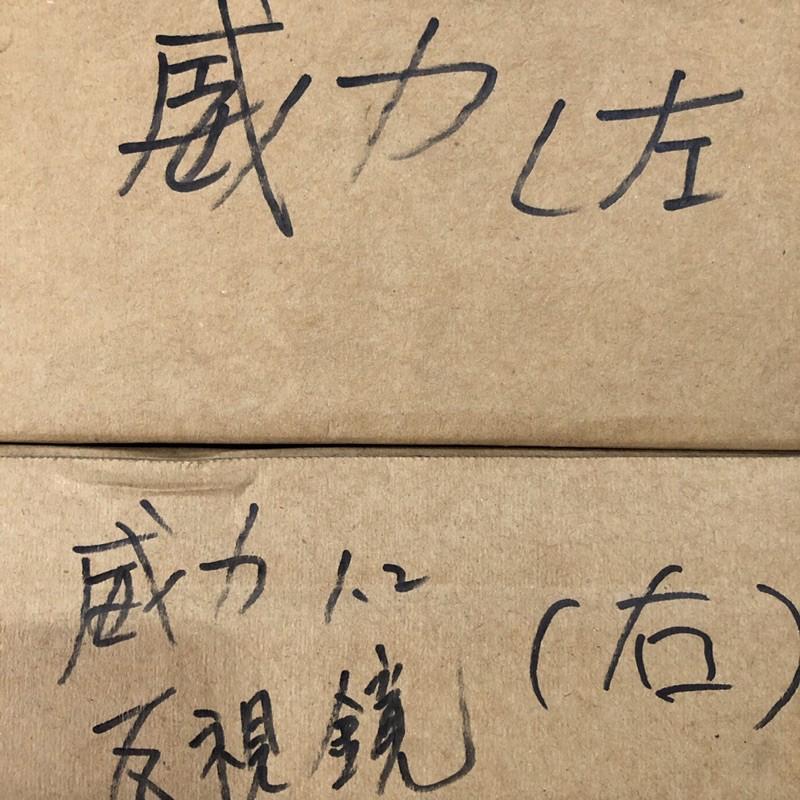 威力(左
威力 1.2 (右)
反視鏡